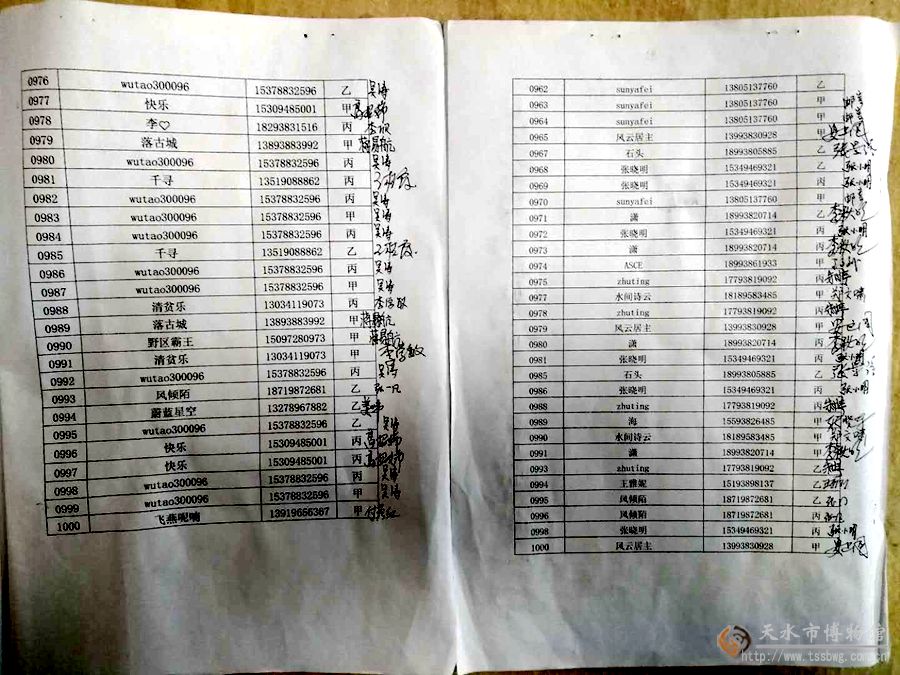 0976 wutao300096 15378832596 乙 吴涛
0977 快乐 15309485001 甲
0978 李♡ 18293831516 丙 李欣
0979 落古城 13893883992 甲
0980 wutao300096 15378832596 丙 吴涛
0981 千寻 13519088862 丙
0982 wutao300096 15378832596 丙 吴涛
0983 wutao300096 15378832596 甲 吴涛
0984 wutao300096 15378832596 丙 吴涛
0985 千寻 13519088862 乙
0986 wutao300096 15378832596 丙 吴涛
0987 wutao300096 15378832596 甲 吴涛
0988 清贫乐 13034119073 丙
0989 落古城 13893883992 甲
0990 野区霸王 15097280973 甲
0991 清贫乐 13034119073 甲
0992 wutao300096 15378832596 丙 吴涛
0993 风倾陌 18719872681 乙
0994 蔚蓝星空 13278967882 乙
0995 wutao300096 15378832596 乙 吴涛
0996 快乐 15309485001 丙
0997 快乐 15309485001 丙
0998 wutao300096 15378832596 丙 吴涛
0999 wutao300096 15378832596 甲 吴涛
1000 飞燕呢喃 13919656367 甲
0962 sunyafei 13805137760 乙
0963 sunyafei 13805137760 甲
0964 sunyafei 13805137760 甲
0965 风云居主 13993830928 丙
0967 石头 18993805885 乙
0968 张晓明 15349469321 乙 张小明
0969 张晓明 15349469321 丙 张小明
0970 sunyafei 13805137760 丙
0971 潇 18993820714 乙
0972 张晓明 15349469321 丙 张小明
0973 潇 18993820714 丙
0974 ASCE 18993861933 甲
0975 zhuting 17793819092 丙
0977 水间诗云 18189583485 甲
0978 zhuting 17793819092 丙
0979 风云居主 13993830928 甲
0980 潇 18993820714 甲
0981 张晓明 15349469321 丙
0985 石头 18993805885 乙
0986 张晓明 15349469321 丙 张小明
0988 zhuting 17793819092 丙
0989 海 15593826485 甲
0990 水间诗云 18189583485 甲
0991 潇 18993820714 甲
0993 zhuting 17793819092 乙
0994 王雅妮 15193898137 乙
0995 风倾陌 18719872681 乙
0996 风倾陌 18719872681 丙
0998 张晓明 15349469321 丙 张小明
1000 风云居主 13993830928 甲
天水市博物馆
http://www.tssbwg.com.cn/